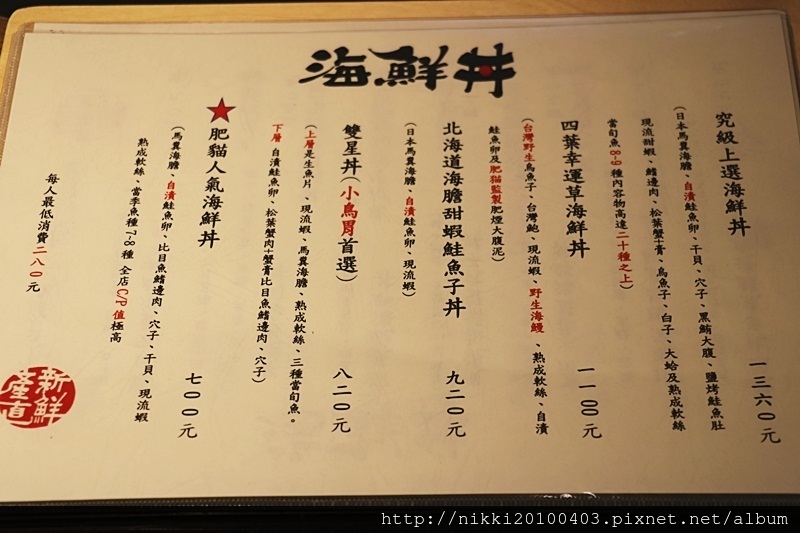 海鮮丼
究級上選海鮮丼
一三六0元
(日本馬糞海膽、自漬鮭魚卵、干貝、穴子、黑鮪大腹、鹽烤鮭魚肚
現流甜蝦、鰭邊肉、松葉蟹+膏、烏魚子、白子、大蛤及熟成軟絲
當旬魚8-9種內容物高達二十種之上)
四葉幸運草海鮮丼
一一00元
(台灣野生烏魚子、台灣鮑、現流蝦、野生海鰻、熟成軟絲、自漬
鮭魚卵及肥貓監製肥煙大腹泥)
北海道海膽甜蝦鮭魚子丼
九二0元
(日本馬糞海膽、自漬鮭魚卵、現流蝦)
雙星丼(小鳥胃首選)
八二0元
(上層是生魚片、現流蝦、馬糞海膽、熟成軟絲、三種當旬魚。
下層 自漬鮭魚卵、松葉蟹肉+蟹膏比目魚鰭邊肉、穴子)
★肥貓人氣海鮮丼
七00元
(馬糞海膽、自漬鮭魚卵、比目魚鰭邊肉、穴子、干貝、現流蝦
熟成軟絲、當季魚種7-8種 全店C/P值極高
每人最低消費二八0元
新鮮產直
http://nikki20100403.pixnet.net/album